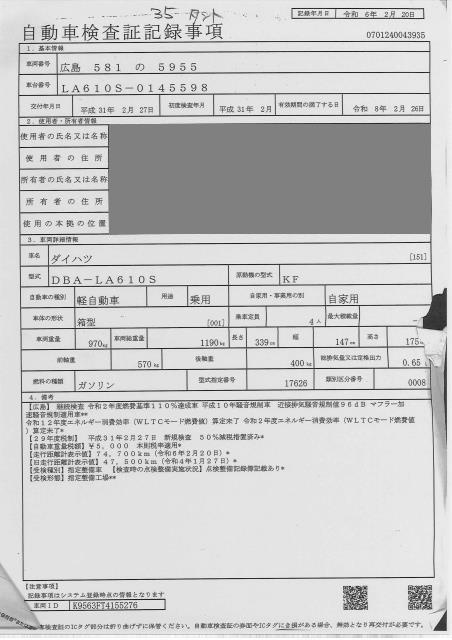 35-タント
記録年月日 令和 6年 2月 20日
自動車検査証記録事項
0701240043935
1．基本情報
車両番号 広島 581 の 5955
車台番号 LA610S-0145598
交付年月日 平成 31年 2月 27日 初度検査年月 平成 31年 2月 有効期間の満了する日 令和 8年 2月 26日
2．使用者・所有者情報
使用者の氏名又は名称
使用者の住所
所有者の氏名又は名称
所有者の住所
使用の本拠の位置
3．車両詳細情報
車名 ダイハツ [151]
型式 DBA-LA610S 原動機の型式 KF
自動車の種別 軽自動車 用途 乗用 自家用・事業用の別 自家用
車体の形状 箱型 [001] 乗車定員 4人 最大積載量 -
車両重量 970kg 車両総重量 1190kg 長さ 339cm 幅 147cm 高さ 175
前軸重 570kg 後軸重 400kg 総排気量又は定格出力 0.65
燃料の種類 ガソリン 型式指定番号 17626 類別区分番号 0008
4．備考
【広島】 継続検査 令和2年度燃費基準110%達成車 平成10年騒音規制車 近接排気騒音規制値96dB マフラー加
速騒音規制適用車**
令和12年度エネルギー消費効率（WLTCモード燃費値）算定未了 令和2年度エネルギー消費効率（WLTCモード燃費値
）算定未了*
【29年度税制】 平成31年2月27日 新規検査 50%減税措置済み*
【自動車重量税額】￥5,000 本則税率適用*
【走行距離計表示値】74,700km（令和6年2月20日）*
【旧走行距離計表示値】47,500km（令和4年1月27日）*
【受検種別】指定整備車 【検査時の点検整備実施状況】点検整備記録簿記載あり*
【受検形態】指定整備工場**
【注意事項】
記録事項はシステム登録時点の情報となります
車両ID K9563FT4155276
車検査証のICタグ部分は折り曲げずに保管ください。自動車検査証の券面やICタグに き損がある場合、無効となり再交付が必要です。